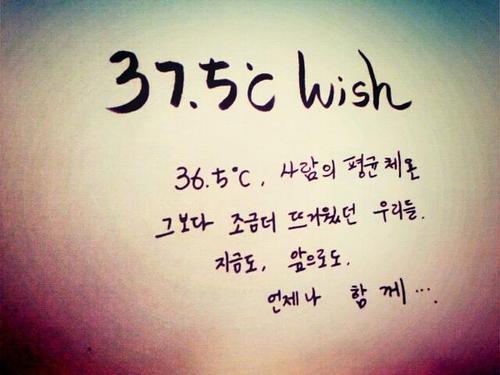 37.5℃ Wish
36.5℃, 사람의 평균체온
그보다 조금더 뜨거웠던 우리들.
지금도, 앞으로도.
언제나 함께...